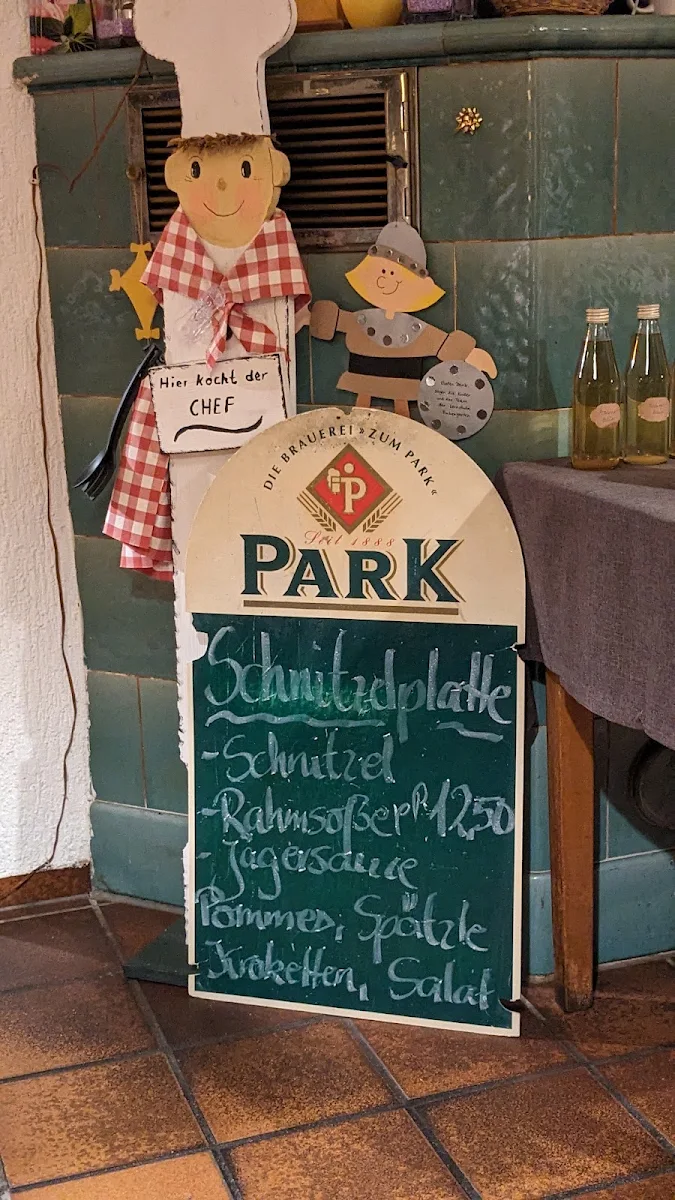 Hier kocht der
CHEF
DIE BRAUEREI »ZUM PARK«
P
Seit 1888
PARK
Schnitzelplatte
- Schnitzel
- Rahmsoße pP. 12,50
- Jägersauce
Pommes, Spätzle
Kroketten, Salat